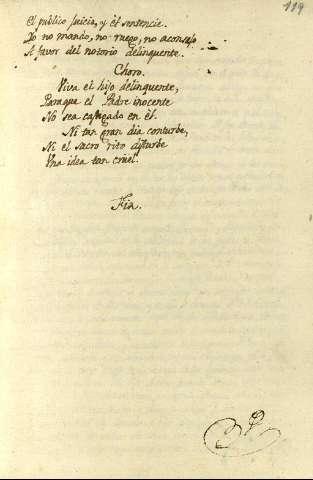 119
El publico juicio, y él sentencie.
Yo no mando, no ruego, no aconsejo
A favor del notorio delinquente.
Choro.
Viva el hijo delinquente,
Paraque el Padre inocente
No sea castigado en él.
Ni tan gran dia conturbe,
Ni el sacro rito disturbe
Una idea tan cruel.
Fin.